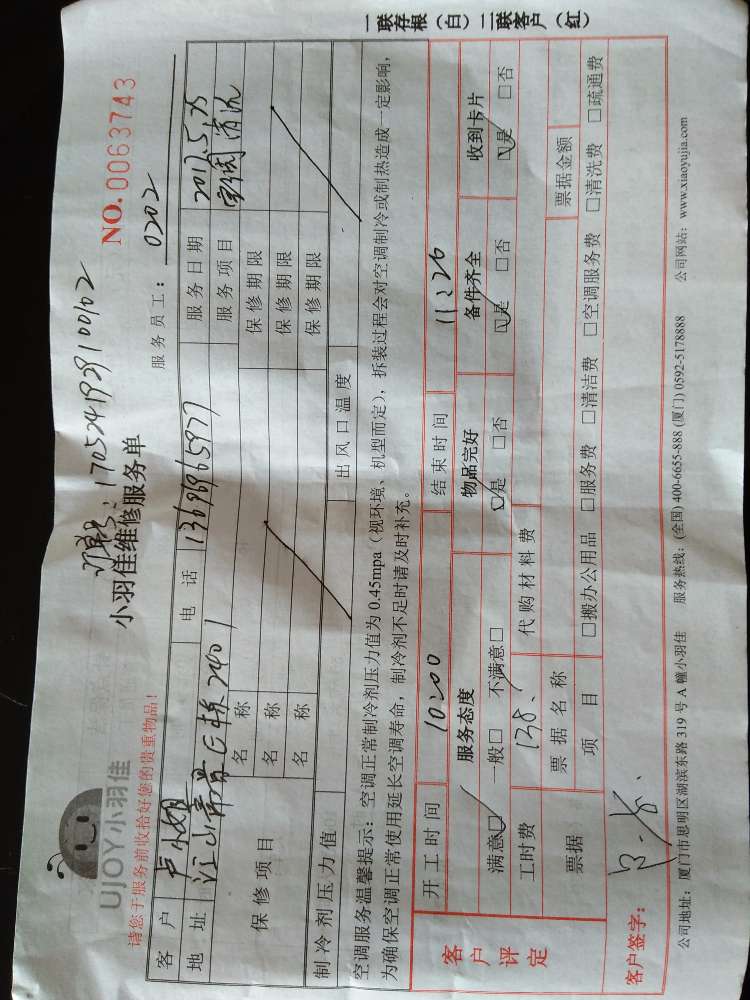 UJOY小羽佳
170524192910002
小羽佳维修服务单
NO. 0063743
请您于服务前收拾好您的贵重物品！
服务员工： 0202
客 户 电 话 13696965977 服务日期 2017.5.25
地 址 江山帝景E栋2401 服务项目 清洗
保修项目
名 称 保修期限
名 称 保修期限
名 称 保修期限
制冷剂压力值 出风口温度
空调服务温馨提示：空调正常制冷剂压力值为 0.45mpa（视环境、机型而定），拆装过程会对空调制冷或制热造成一定影响，
为确保空调正常使用延长空调寿命，制冷剂不足时请及时补充。
客户评定
开工时间 10:00 结束时间 11:26
服务态度 物品完好 备件齐全 收到卡片
满意☑ 一般□ 不满意□ ☑是 □否 ☑是 □否 ☑是 □否
工时费 138. 代购材料费
票据 票据名称 票据金额
项 目 □搬办公用品 □服务费 □清洁费 □空调服务费 □清洗费 □疏通费
客户签字：
公司地址：厦门市思明区湖滨东路 319 号 A 幢小羽佳 服务热线：(全国) 400-6655-888 (厦门) 0592-5178888 公司网站：www.xiaoyujia.com
一联存根（白）二联客户（红）